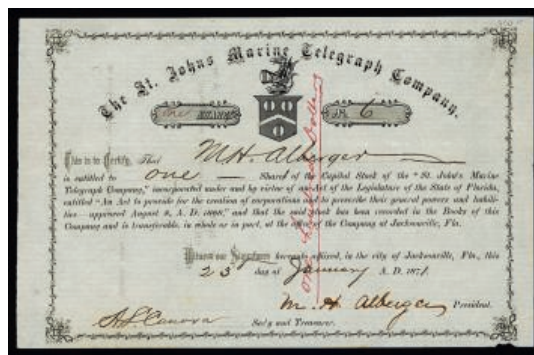 The St. Johns Marine Telegraph Company.
One SHARE
No. 6
This is to Certify, That M. H. Alberger
is entitled to One Share of the Capital Stock of the "St. John's Marine
Telegraph Company," incorporated under and by virtue of an Act of the Legislature of the State of Florida,
entitled "An Act to provide for the creation of corporations and to prescribe their general powers and liabili-
ties approved August 8, A. D. 1868," and that the said stock has been recorded in the Books of this
Company and is transferable, in whole or in part, at the office of the Company at Jacksonville, Fla.
Witness our Signatures hereunto affixed, in the city of Jacksonville, Fla., this
23 day of January A. D. 1871.
M. H. Alberger President.
A. S. Canova
Sec'y and Treasurer.
One Hundred Dollars